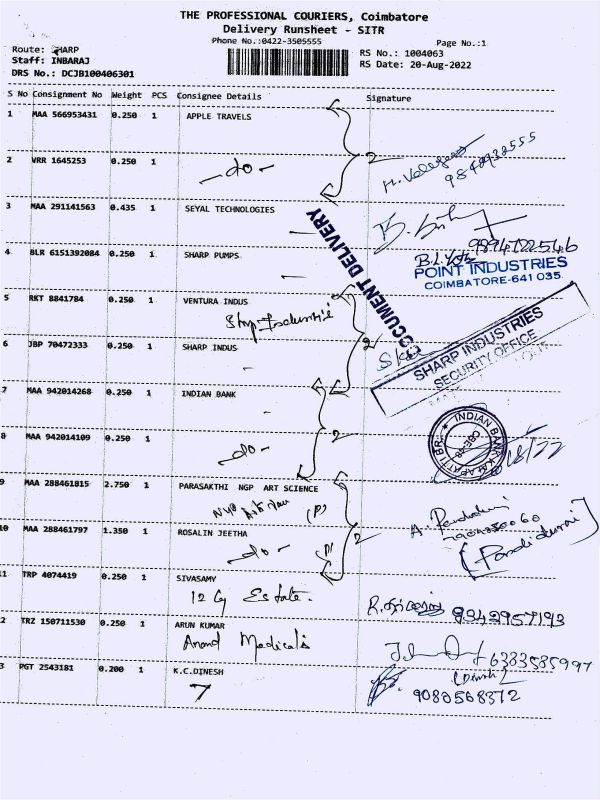 THE PROFESSIONAL COURIERS, Coimbatore
Delivery Runsheet - SITR
Phone No.:0422-3505555
Page No.:1
Route: SHARP
RS No.: 1004063
Staff: INBARAJ
RS Date: 20-Aug-2022
DRS No.: DCJB100406301
S No Consignment No Weight PCS Consignee Details Signature
1 MAA 566953431 0.250 1 APPLE TRAVELS
2
9842932555
2 VRR 1645253 0.250 1
-do-
3 MAA 291141563 0.435 1 SEYAL TECHNOLOGIES
DOCUMENT DELIVERY
9894722546
4 BLR 6151392084 0.250 1 SHARP PUMPS
POINT INDUSTRIES
COIMBATORE-641 035.
5 RKT 8841784 0.250 1 VENTURA INDUS
2
SHARP INDUSTRIES
SECURITY OFFICE
6 JBP 70472333 0.250 1 SHARP INDUS
7 MAA 942014268 0.250 1 INDIAN BANK
2
INDIAN BANK
8 MAA 942014109 0.250 1
-do-
9 MAA 288461815 2.750 1 PARASAKTHI NGP ART SCIENCE
(P)
2
A. Pandidurai
10 MAA 288461797 1.350 1 ROSALIN JEETHA
-do-
(P)
(Pandidurai)
11 TRP 4074419 0.250 1 SIVASAMY
12 Cg Estate.
9942957193
2 TRZ 150711530 0.250 1 ARUN KUMAR
Anand Medicals
6383585997
3 PGT 2543181 0.200 1 K.C.DINESH
7
(Dinesh)
9080568372